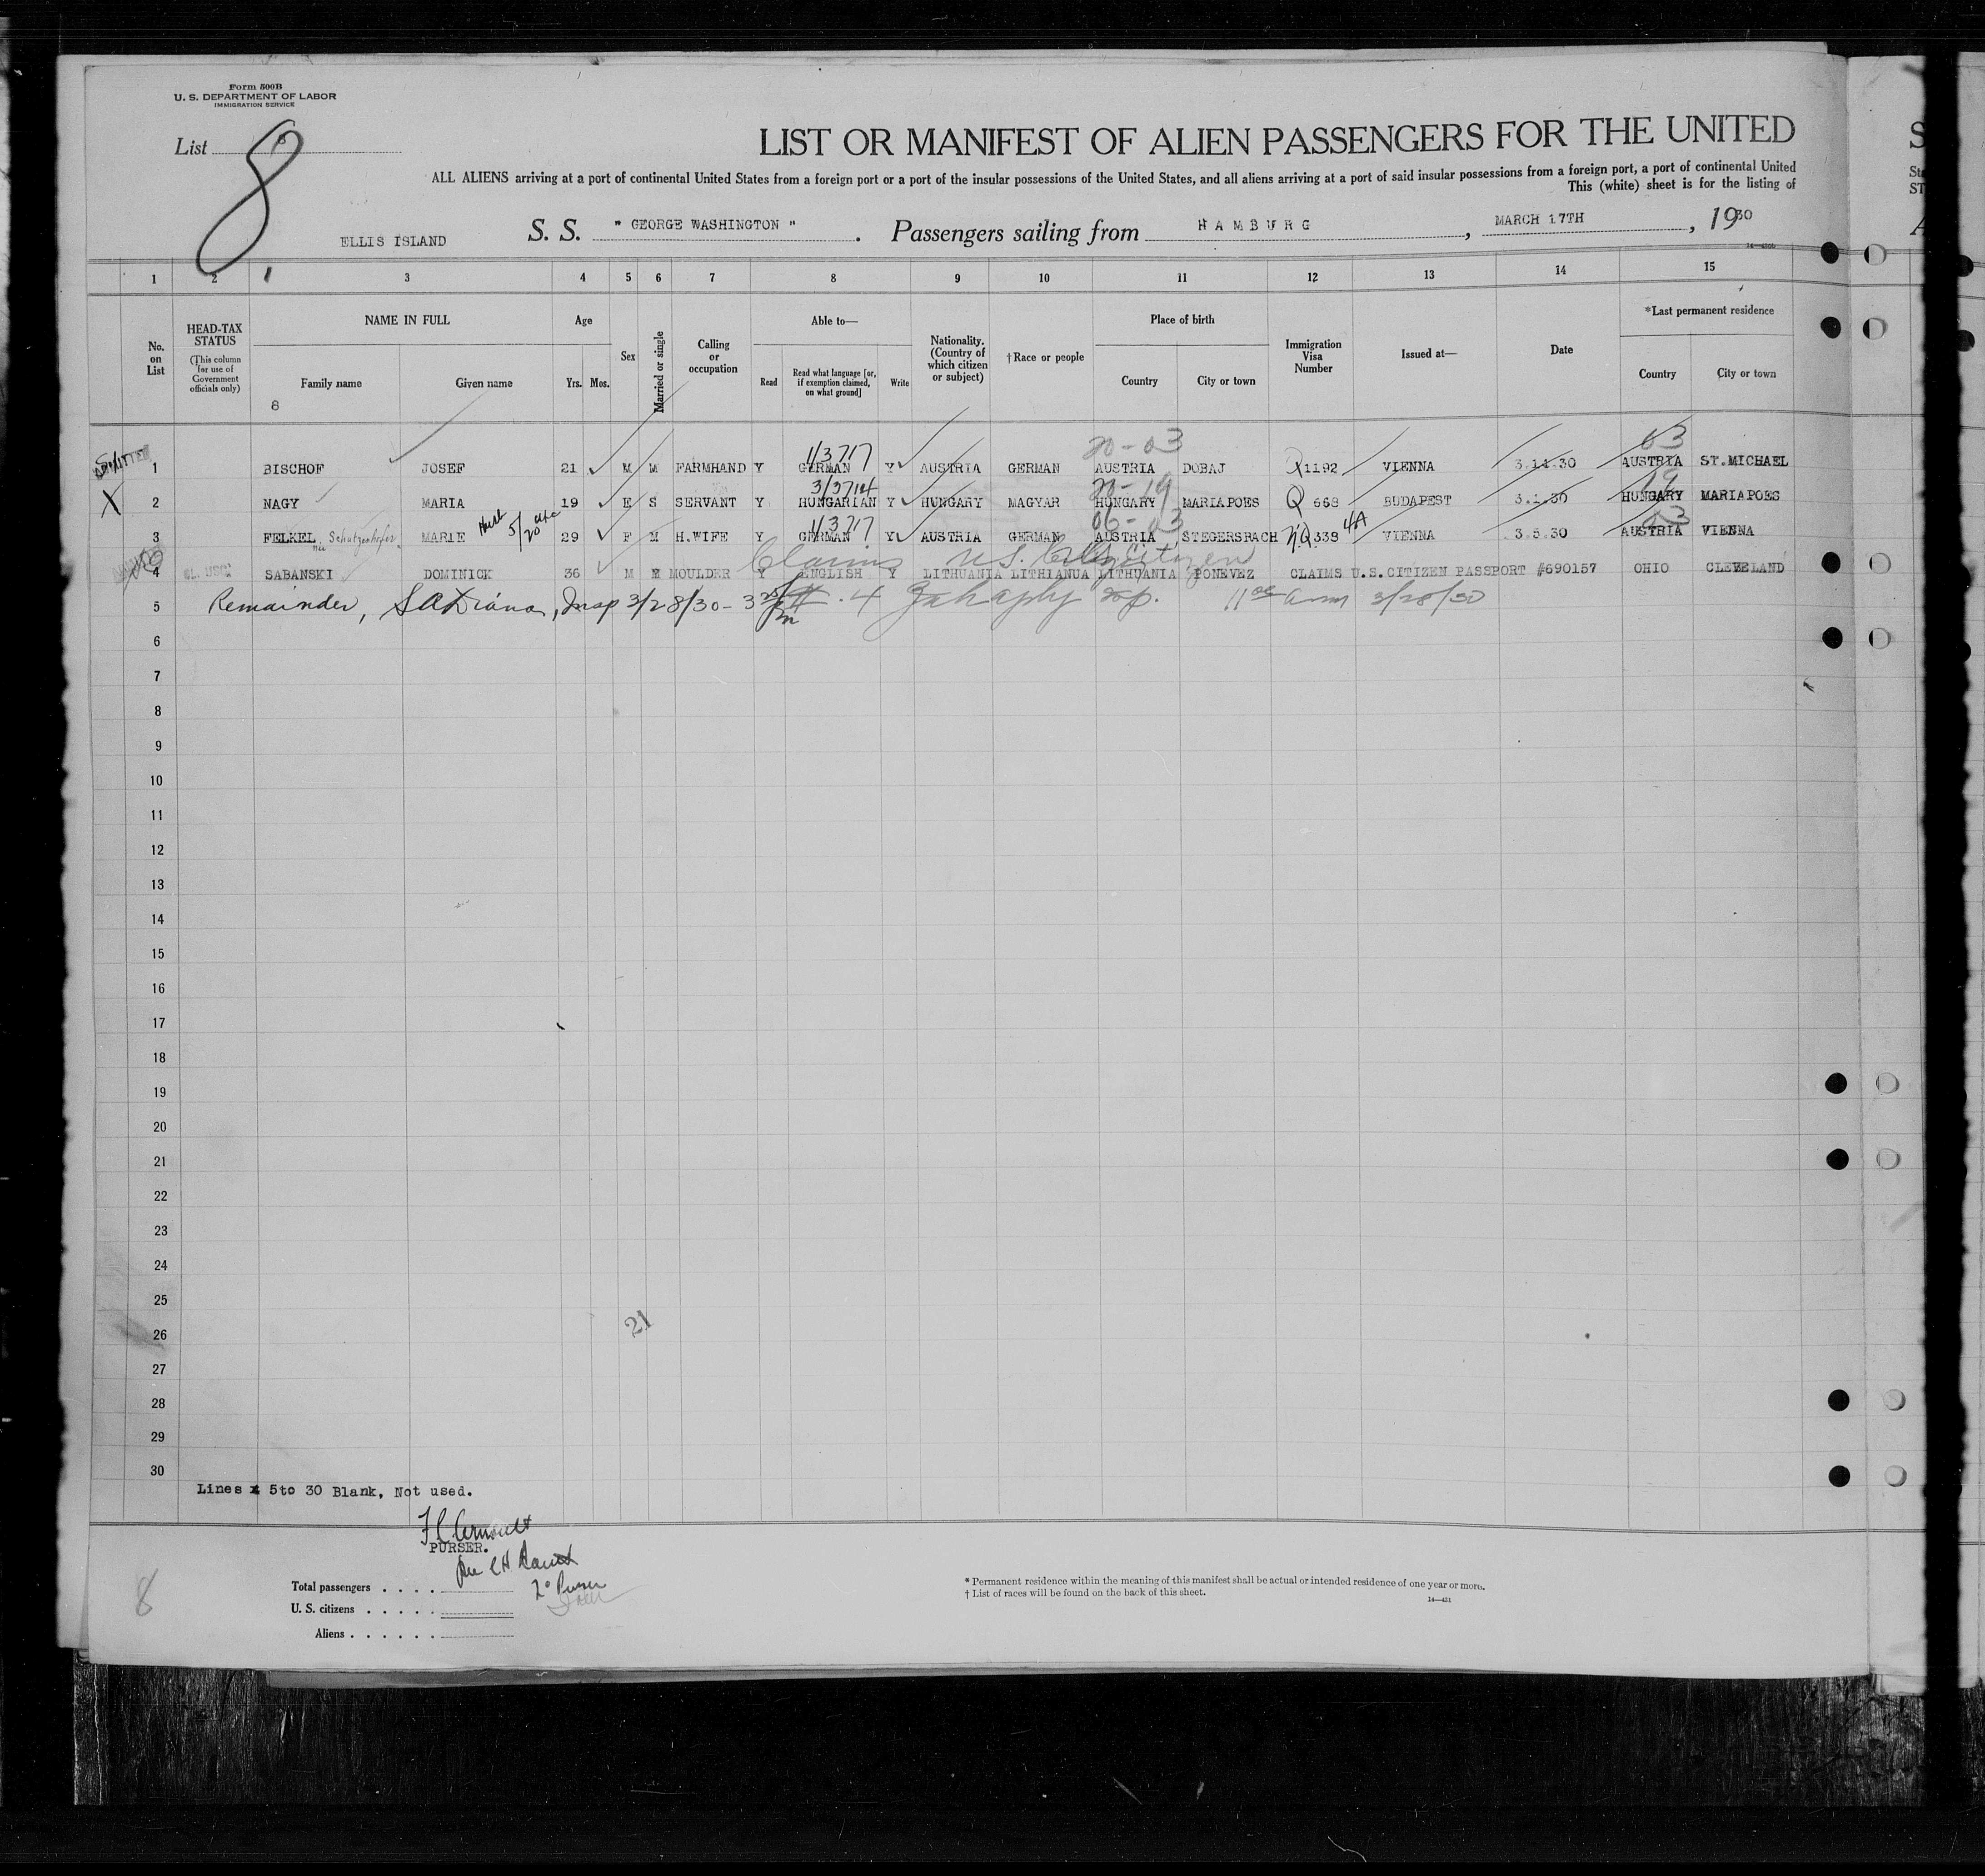 Form 500B
U. S. DEPARTMENT OF LABOR
IMMIGRATION SERVICE
List 8
8
LIST OR MANIFEST OF ALIEN PASSENGERS FOR THE UNITED
ALL ALIENS arriving at a port of continental United States from a foreign port or a port of the insular possessions of the United States, and all aliens arriving at a port of said insular possessions from a foreign port, a port of continental United
This (white) sheet is for the listing of
ELLIS ISLAND S. S. " GEORGE WASHINGTON " . Passengers sailing from HAMBURG , MARCH 17TH , 1930
1 2 3 4 5 6 7 8 9 10 11 12 13 14 15
No. on List
HEAD-TAX STATUS (This column for use of Government officials only)
NAME IN FULL Family name Given name
Age Yrs. Mos.
Sex
Married or single
Calling or occupation
Able to— Read Read what language [or, if exemption claimed, on what ground] Write
Nationality. (Country of which citizen or subject)
†Race or people
Place of birth Country City or town
Immigration Visa Number
Issued at—
Date
*Last permanent residence Country City or town
8
1/3717 20-03 63
1 BISCHOF JOSEF 21 M M FARMHAND Y GERMAN Y AUSTRIA GERMAN AUSTRIA DOBAJ Q 1192 VIENNA 3.14.30 AUSTRIA ST.MICHAEL
3/3714 20-19 19
X 2 NAGY MARIA 19 F S SERVANT Y HUNGARIAN Y HUNGARY MAGYAR HUNGARY MARIAPOES Q 668 BUDAPEST 3.1.30 HUNGARY MARIAPOES
1/3717 06-03 4A
3 FELKEL née Schutzenhofer MARIE 29 F M H.WIFE Y GERMAN Y AUSTRIA GERMAN AUSTRIA STEGERSBACH NQ 339 VIENNA 3.5.30 AUSTRIA VIENNA
Claims U.S. Citizen
4 SABANSKI DOMINICK 36 M MOULDER Y ENGLISH Y LITHUANIA LITHIANUA LITHUANIA PONEVEZ CLAIMS U.S.CITIZEN PASSPORT #690157 OHIO CLEVELAND
5 Remainder, Insp 3/28/30 11 am 3/28/30
6
7
8
9
10
11
12
13
14
15
16
17
18
19
20
21
22
23
24
25
21
26
27
28
29
30
Lines 5to 30 Blank, Not used.
PURSER.
8
Total passengers . . . .
U. S. citizens . . . . .
Aliens . . . . . .
* Permanent residence within the meaning of this manifest shall be actual or intended residence of one year or more.
† List of races will be found on the back of this sheet.
14—431